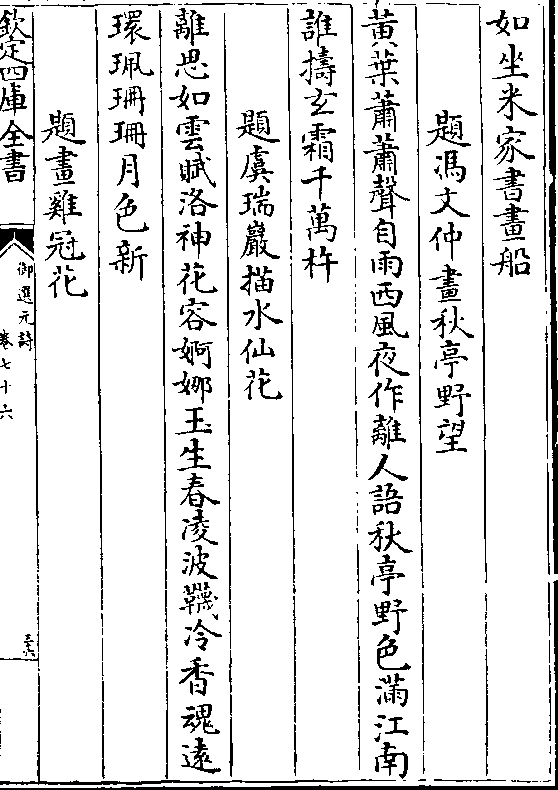 如坐米家書畫船
題馮文仲畫秋亭野望
黄葉蕭蕭聲自雨西風夜作離人語秋亭野色滿江南
誰擣玄霜千萬杵
題虞瑞巖描水仙花
離思如雲賦洛神花容婀娜玉生春凌波韈冷香魂遠
環珮珊珊月色新
題畫雞冠花
欽定四庫全書
御選元詩
卷七十六